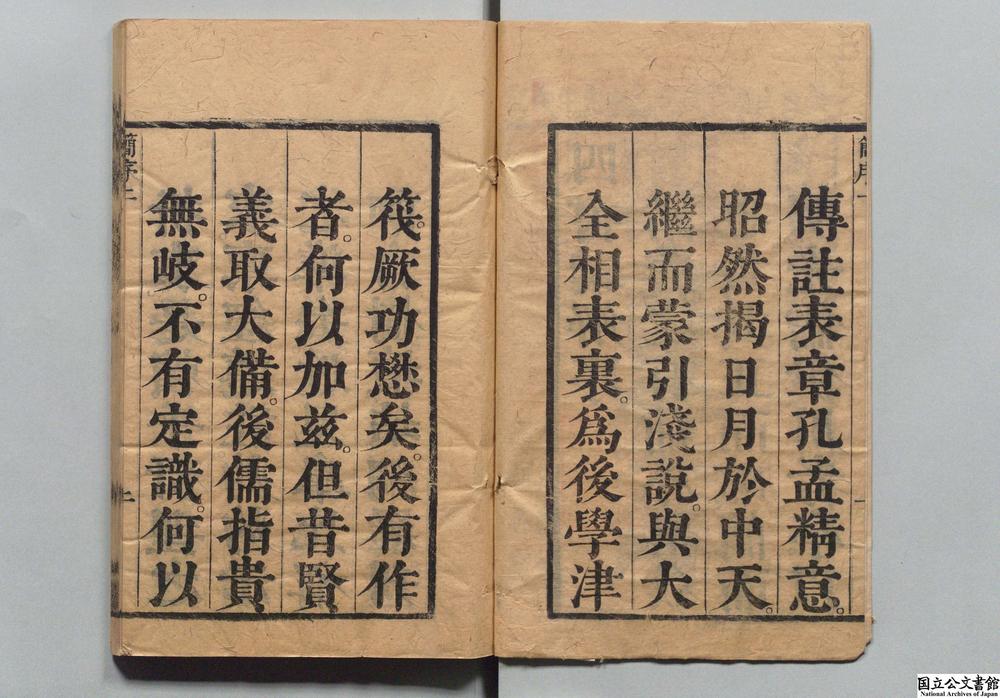 傳註表章孔孟精意。
昭然揭日月於中天。
繼而蒙引淺說。與大
全相表裏。爲後學津
筏。厥功懋矣。後有作
者。何以加兹。但昔賢
義取大備。後儒指貴
無岐。不有定識。何以
簡序二
国立公文書館
National Archives of Japan